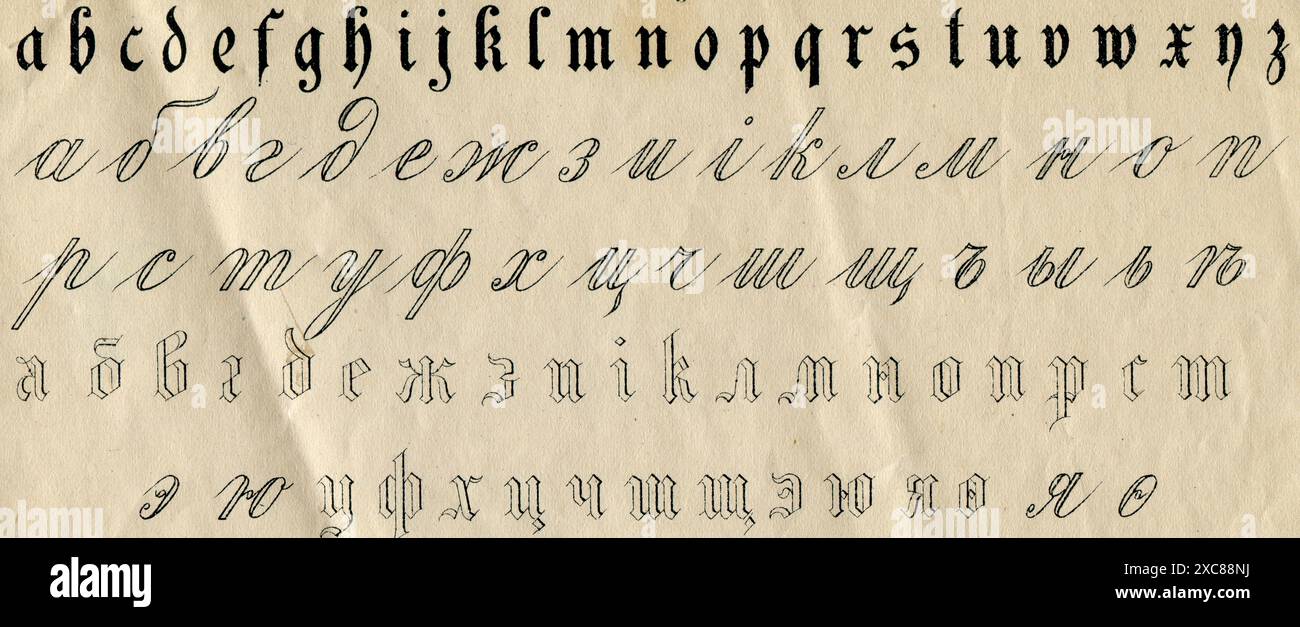 a b c d e f g h i j k l m n o p q r s t u v w x y z
а б в г д е ж з и і к л м н о п
р с т у ф х ц ч ш щ ъ ы ь ѣ
а б в г д е ж з и і к л м н о п р с т
э ю у ф х ц ч ш щ э ю я ѳ я ѳ
alamy
Image ID: 2XC88NJ
www.alamy.com